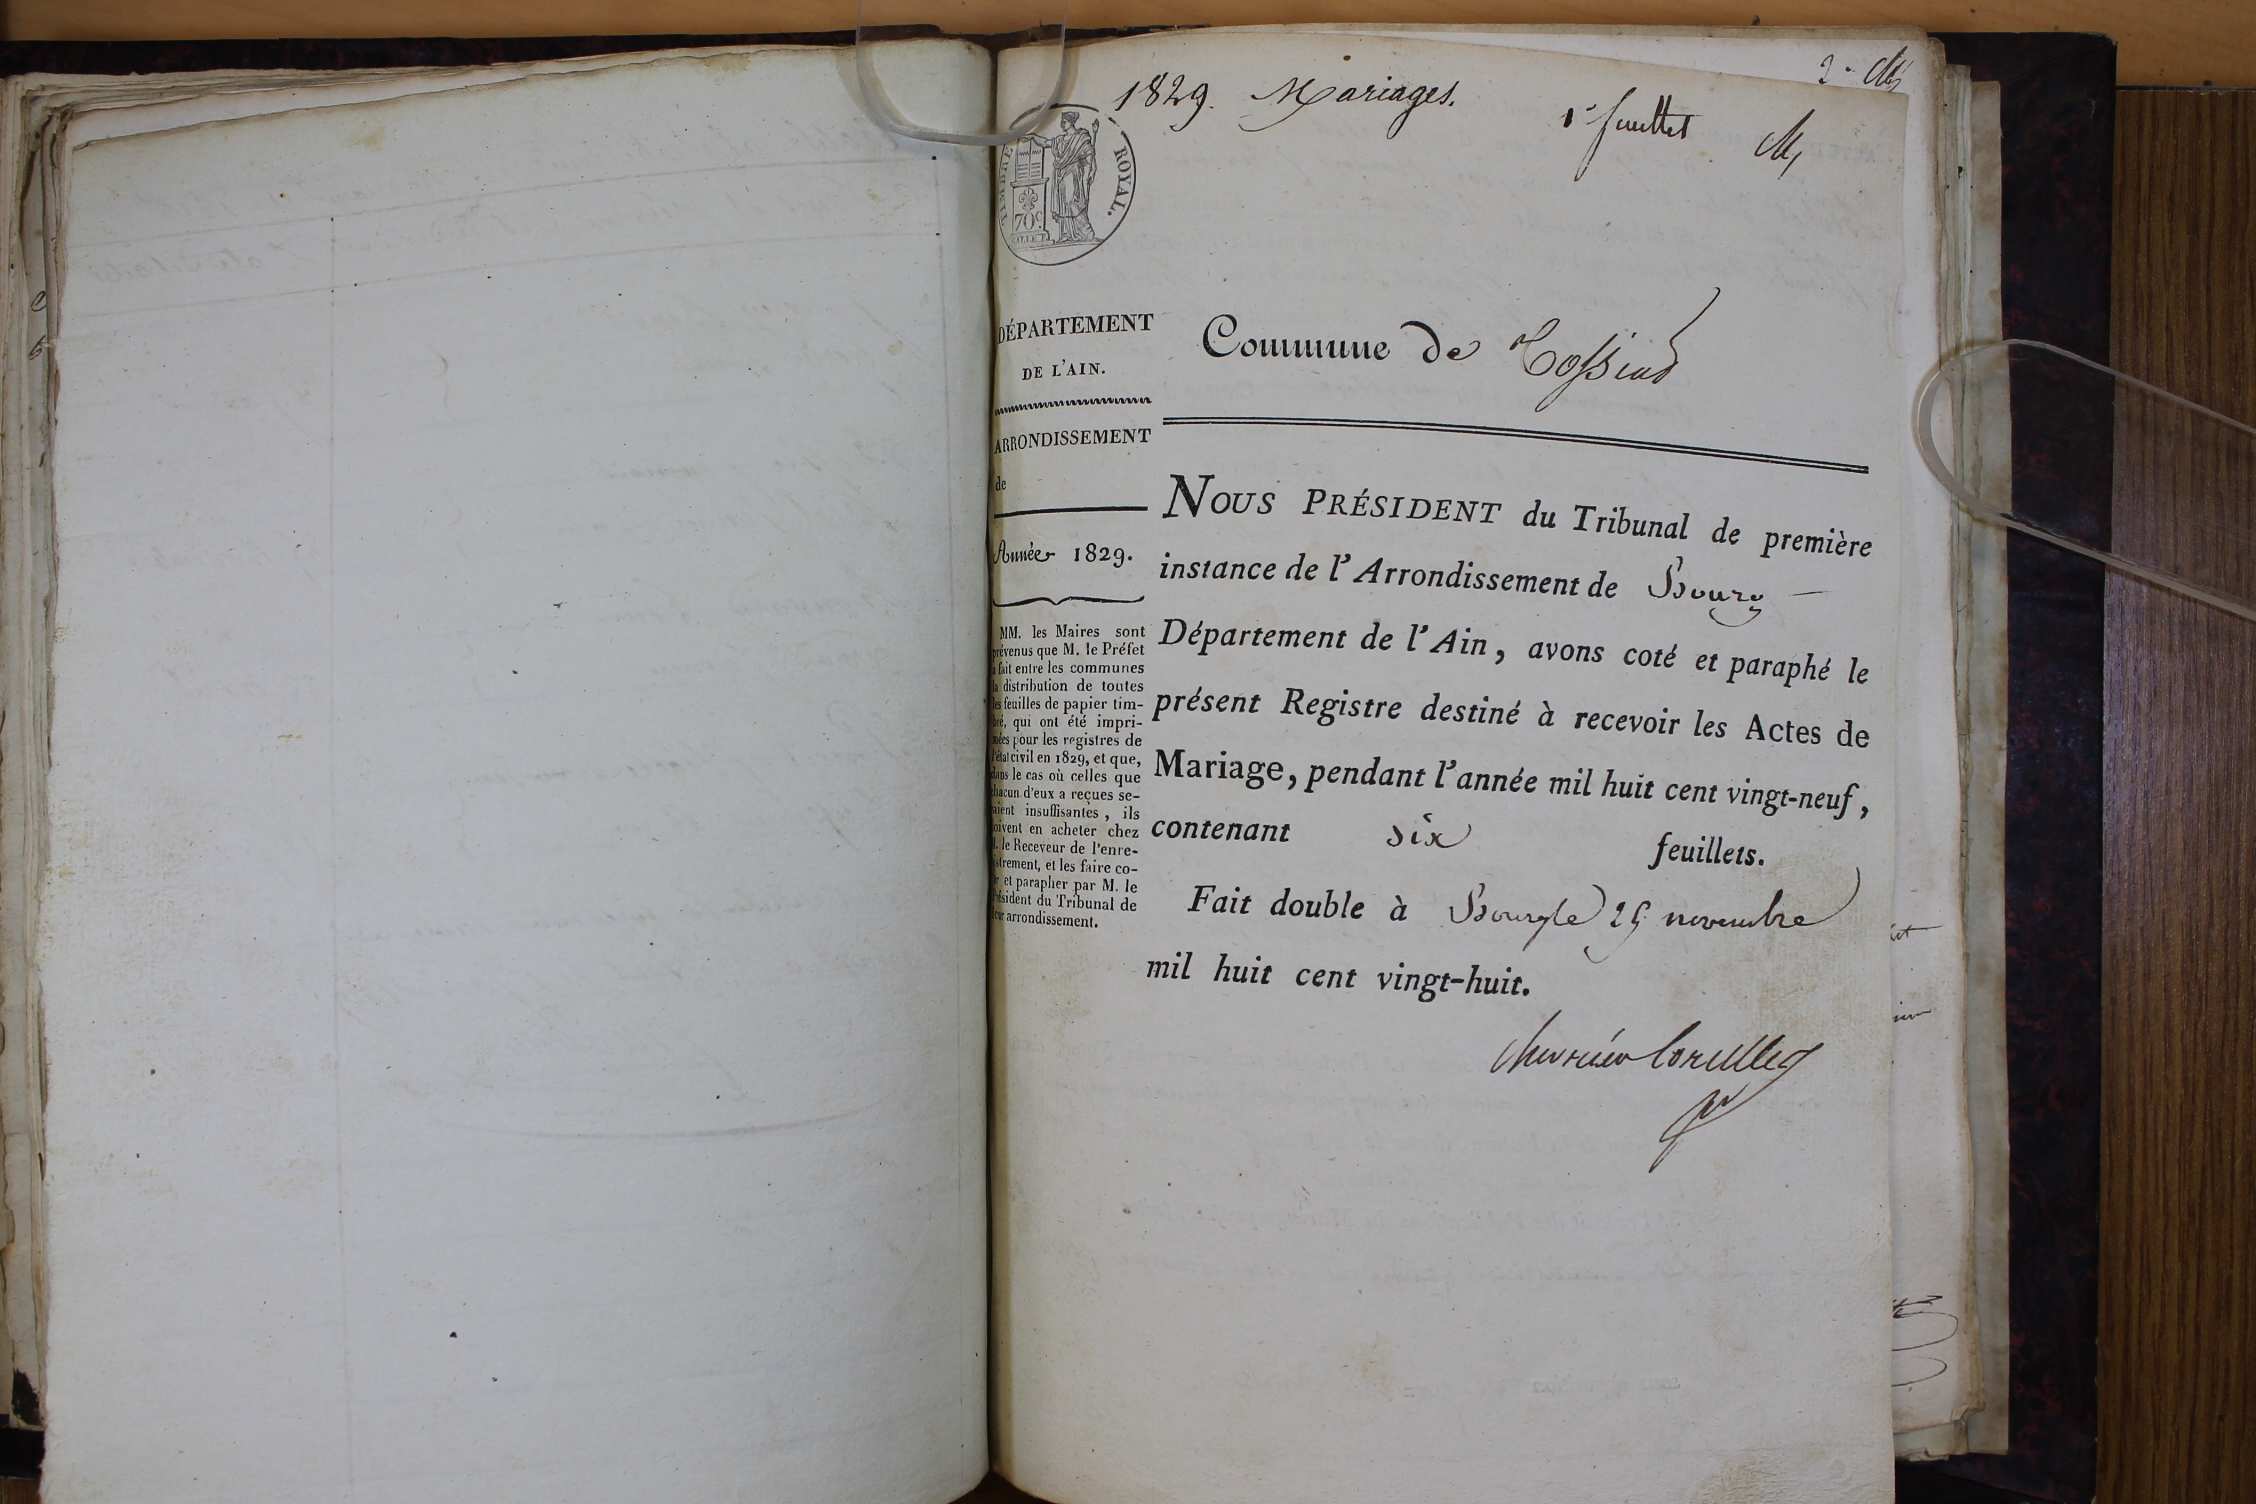 1829. Mariages.
1er feuillet
TIMBRE ROYAL.
70c
DÉPARTEMENT
DE L'AIN.
ARRONDISSEMENT
de
Année 1829.
MM. les Maires sont
prévenus que M. le Préfet
a fait entre les communes
la distribution de toutes
les feuilles de papier tim-
bré, qui ont été impri-
mées pour les registres de
l'état civil en 1829, et que,
dans le cas où celles que
chacun d'eux a reçues se-
raient insuffisantes, ils
doivent en acheter chez
M. le Receveur de l'enre-
gistrement, et les faire co-
ter et parapher par M. le
Président du Tribunal de
leur arrondissement.
Commune de Tossiat
NOUS PRÉSIDENT du Tribunal de première
instance de l'Arrondissement de Bourg —
Département de l'Ain, avons coté et paraphé le
présent Registre destiné à recevoir les Actes de
Mariage, pendant l'année mil huit cent vingt-neuf,
contenant six feuillets.
Fait double à Bourg le 25 novembre
mil huit cent vingt-huit.